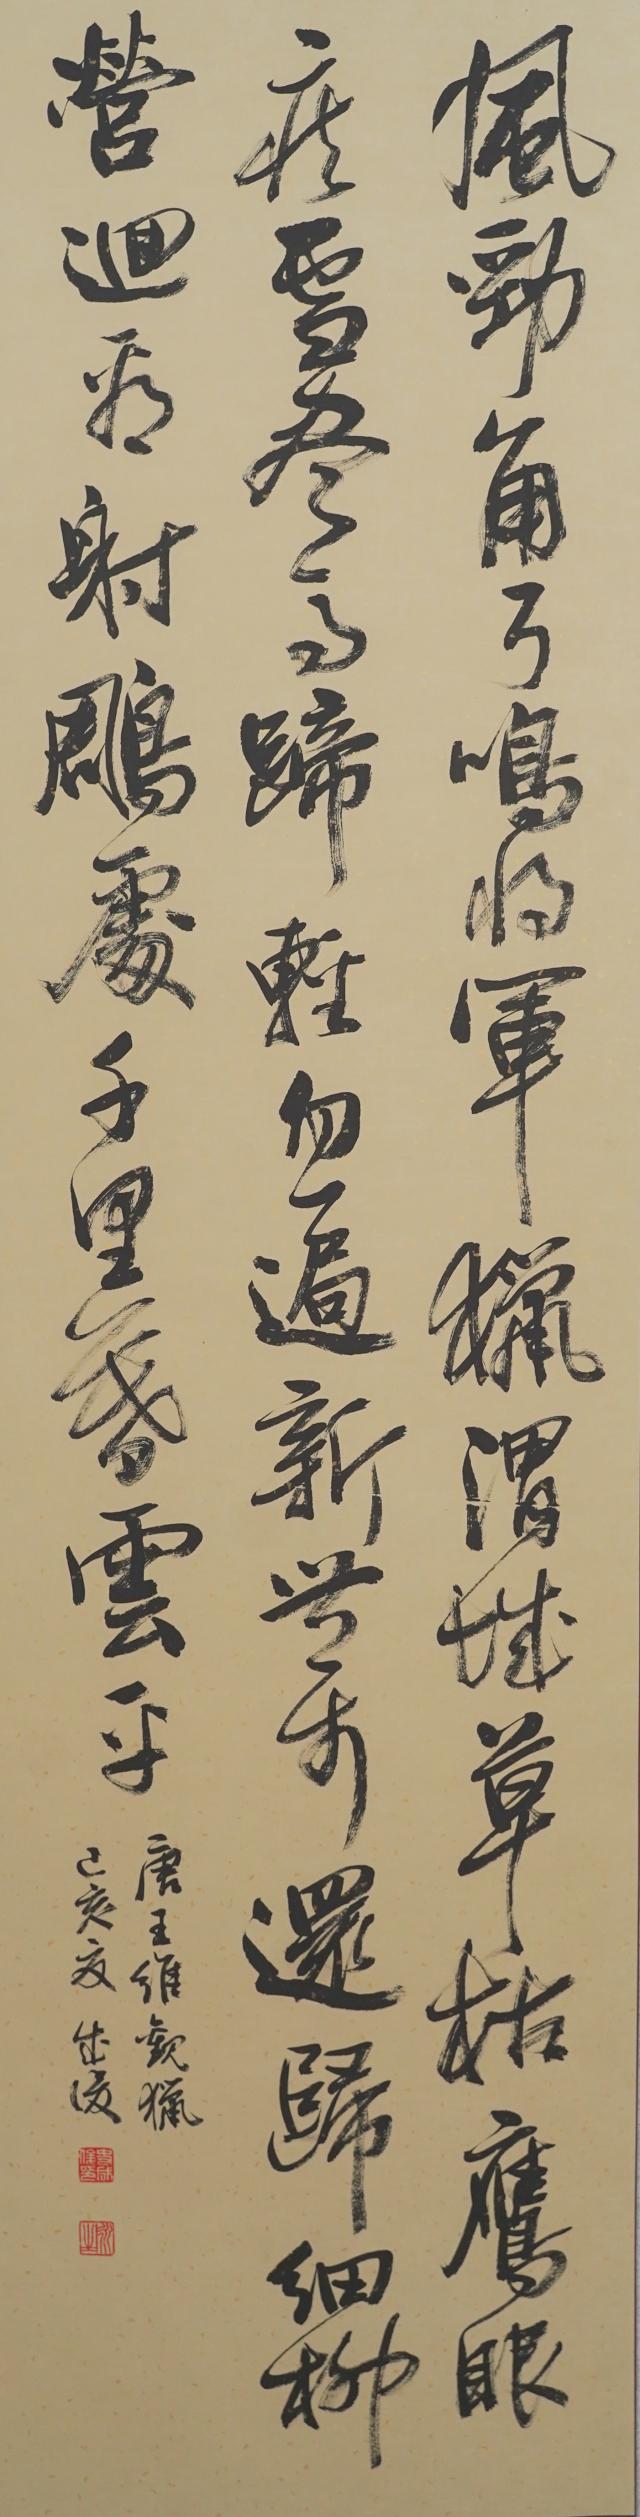 風勁角弓鳴將軍獵渭城草枯鷹眼
疾雪盡馬蹄輕忽過新豐市還歸細柳
營迴看射鵰處千里暮雲平
唐王維觀獵
己亥夏成俊